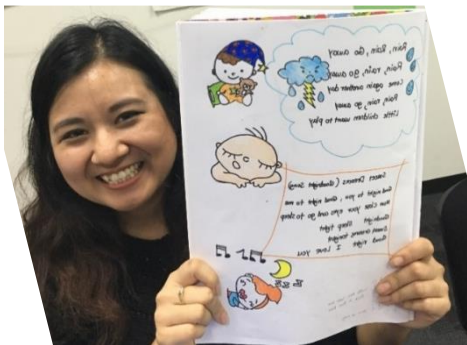 Rain, Rain, Go away
Rain, rain go away
Come again another day
Rain, rain, go away
Little children want to play
Sweet Dreams (Goodnight Song)
Good night to you, Good night to me
Now close your eyes and go to sleep
Goodnight Sleep tight
Sweet dreams tonight
Good night I Love you